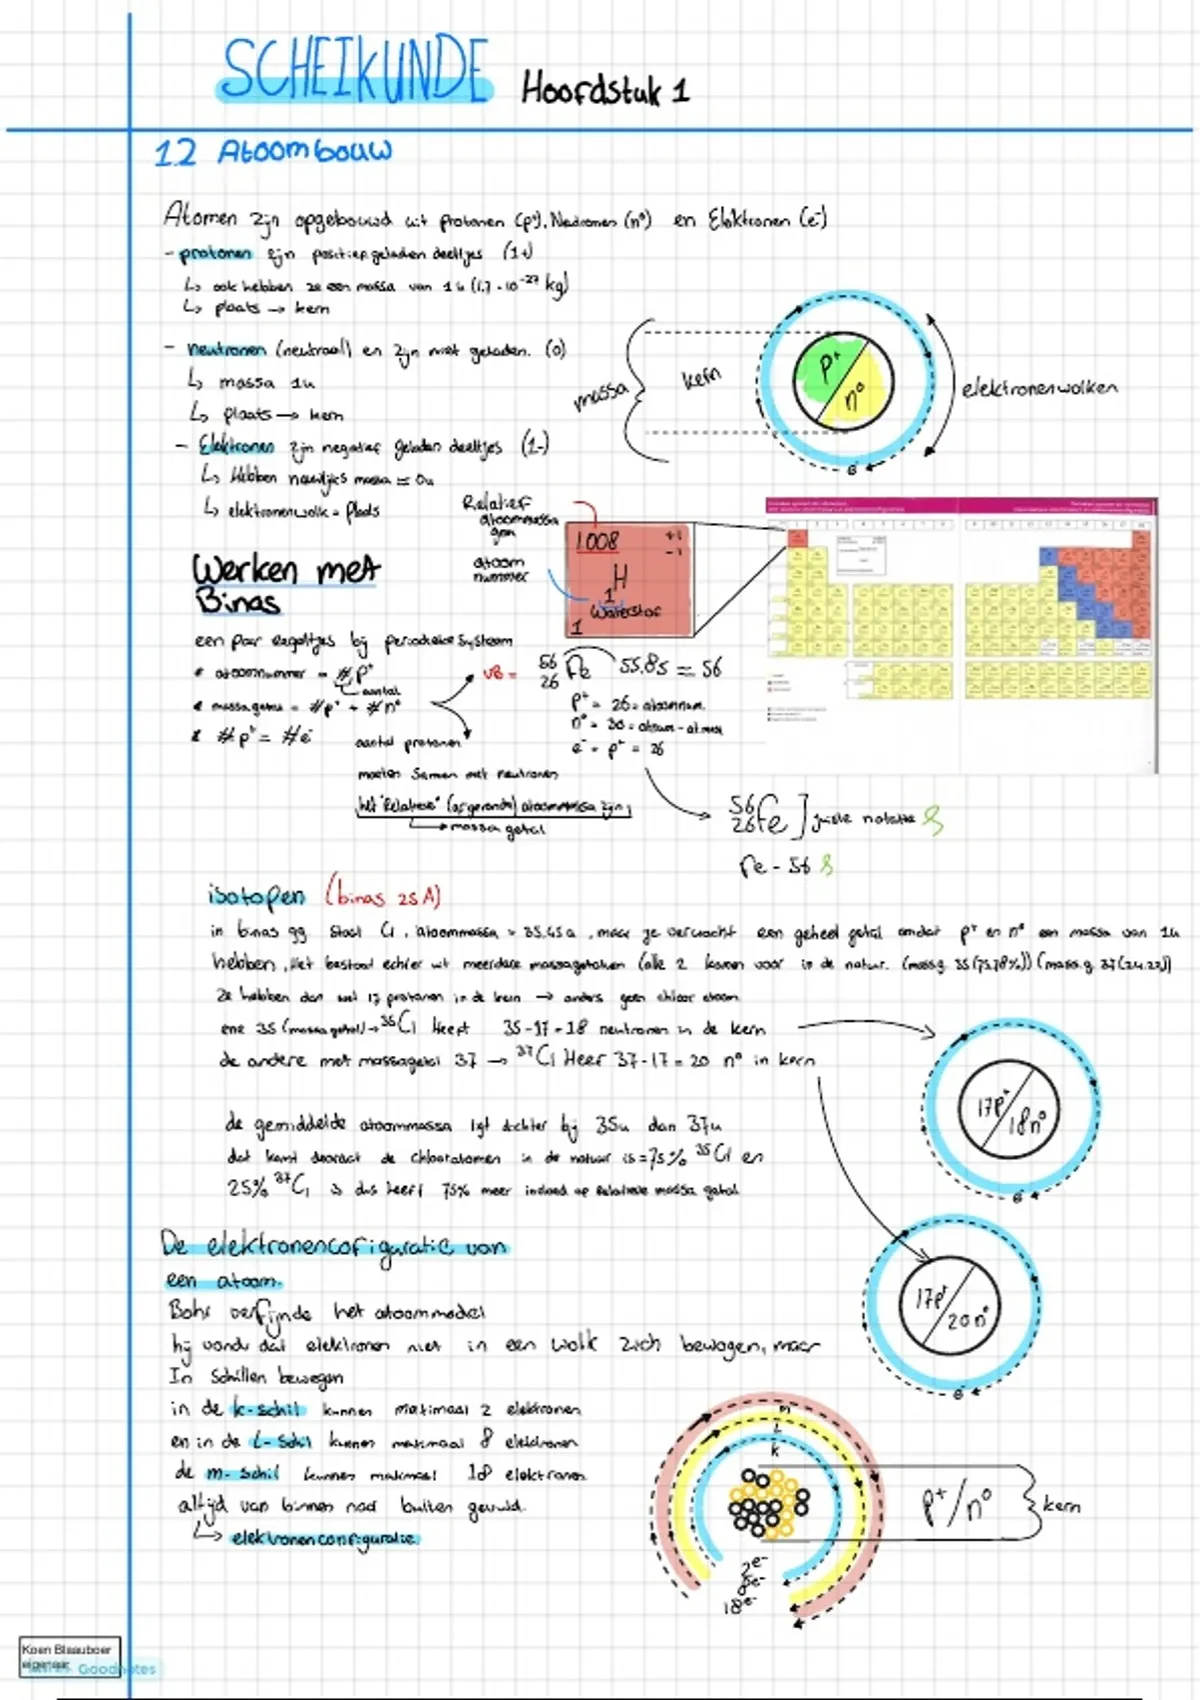 SCHEIKUNDE Hoofdstuk 1
1.2 Atoombouw
Atomen zijn opgebouwd uit protonen (p⁺), Neutronen (n⁰) en Elektronen (e⁻)
- protonen zijn positief geladen deeltjes (1+)
↳ ook hebben ze een massa van 1u (1,7 · 10⁻²⁷ kg)
↳ plaats → kern
- neutronen (neutraal) en zijn niet geladen. (0)
↳ massa 1u
↳ plaats → kern
- Elektronen zijn negatief geladen deeltjes (1-)
↳ Hebben massa = 0u
↳ elektronenwolk = Plaats
massa
kern
p⁺
n⁰
e⁻
elektronenwolken
Relatief
atoommassa
atoom
nummer
1.008
+1
-1
H
1
Waterstof
1
Werken met
Binas
een paar regeltjes bij periodieke systeem
* atoomnummer = #p⁺
aantal
* massagetal = #p⁺ + #n⁰
* #p⁺ = #e⁻
aantal protonen
moeten samen met neutronen
het "Relatieve" (afgeronde) atoommassa zijn
→ massa getal
VB =
56
26 Fe 55.85 = 56
p⁺ = 26 = atoomnum.
n⁰ = 30 =
e⁻ = p⁺ = 26
56
26 Fe ] juiste notatie
Fe - 56
isotopen (binas 25A)
in binas 99 staat Cl, atoommassa = 35.45u, maar je verwacht een geheel getal omdat p⁺ en n⁰ een massa van 1u
hebben, Het bestaat echter uit meerdere massagetallen (alle 2 komen voor in de natuur. (massg. 35 (75.78%)) (mass.g. 37 (24.22))
Ze hebben dan wel 17 protonen in de kern → anders geen chloor atoom
ene 35 (massa getal) → ³⁵Cl Heeft 35-17 = 18 neutronen in de kern
de andere met massagetal 37 → ³⁷Cl Heef 37-17 = 20 n⁰ in kern
17p⁺
18n⁰
e⁻
de gemiddelde atoommassa ligt dichter bij 35u dan 37u
dat komt doordat de chlooratomen in de natuur is = 75% ³⁵Cl en
25% ³⁷Cl is dus heeft 75% meer invloed op Relatieve massa getal
17p⁺
20n⁰
e⁻
De elektronenconfiguratie van
een atoom.
Bohr verfijnde het atoommodel
hij vondt dat elektronen niet in een wolk zich bewogen, maar
In schillen bewegen
in de k-schil kunnen maximaal 2 elektronen
en in de L-schil kunnen maximaal 8 elektronen
de m-schil kunnen maximaal 18 elektronen
altijd van binnen naar buiten gevuld.
↳ elektronenconfiguratie
m
L
k
p⁺/n⁰
kern
2e⁻
8e⁻
18e⁻
Koen Blaauboer
eigenaar
Goodnotes